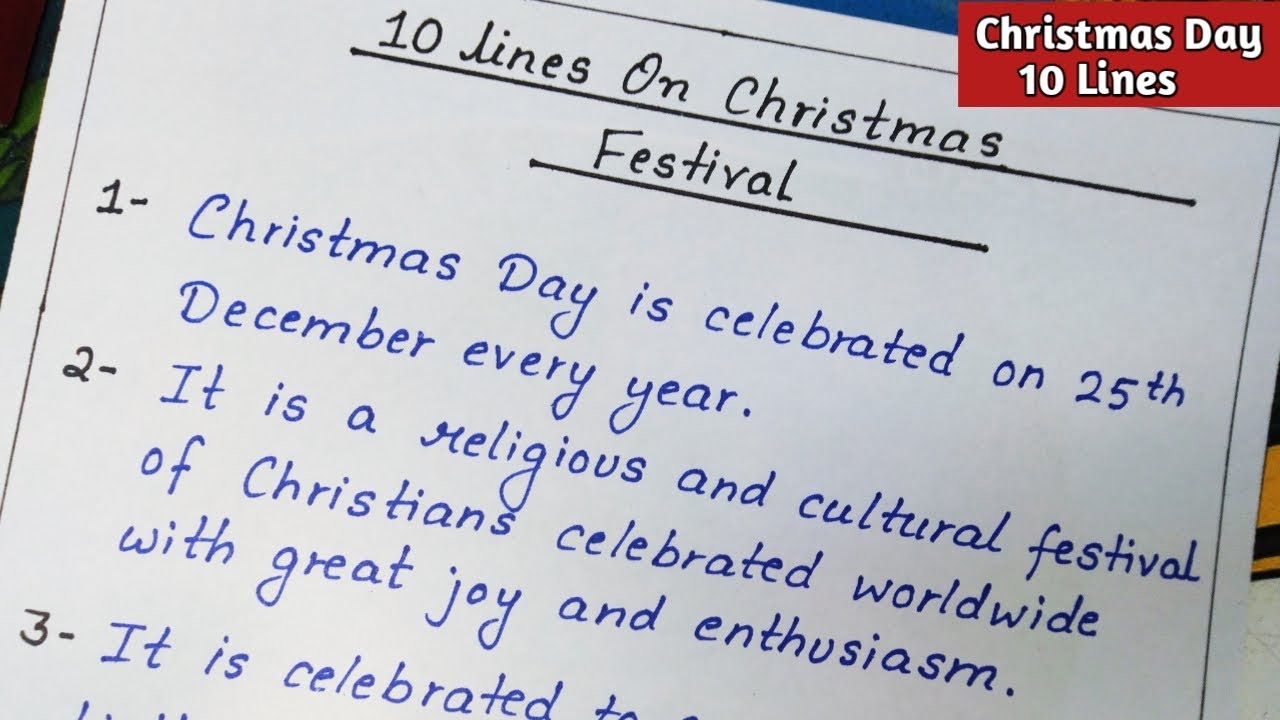 Christmas Day
10 Lines
10 lines On Christmas
Festival
1- Christmas Day is celebrated on 25th
December every year.
2- It is a religious and cultural festival
of Christians celebrated worldwide
with great joy and enthusiasm.
3- It is celebrated to